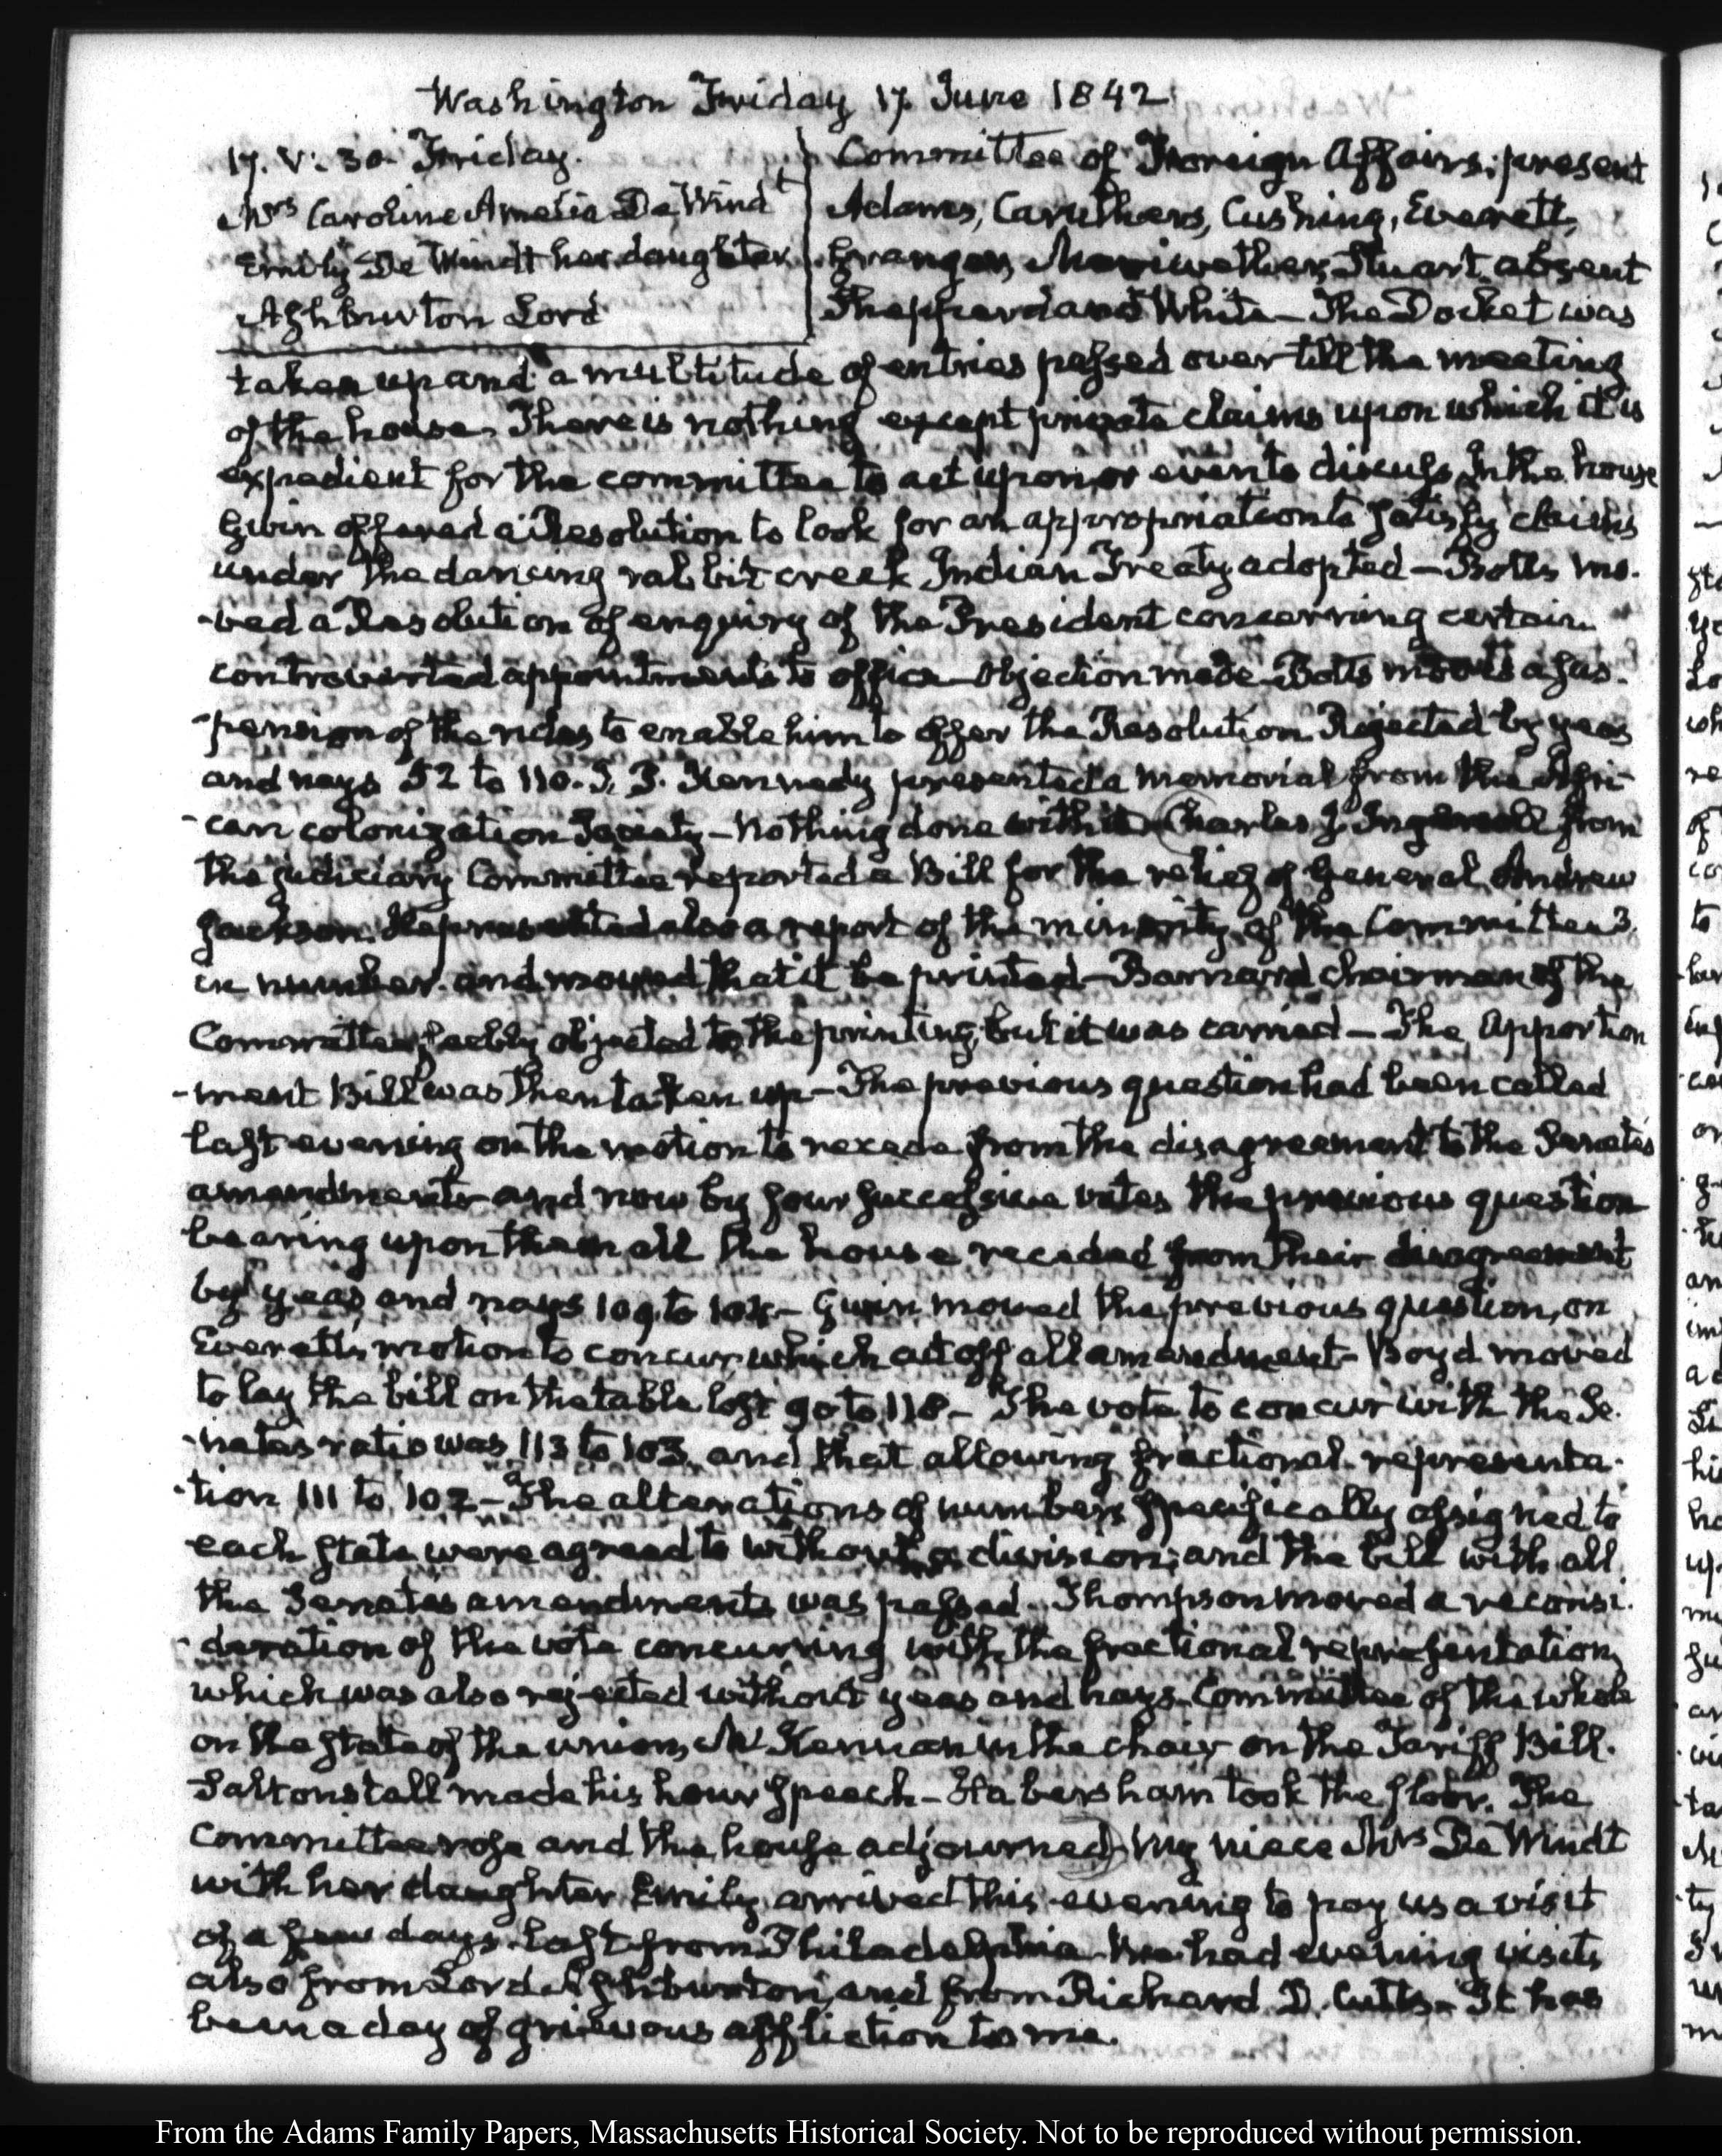 Washington Friday 17 June 1842
17. V: 30. Friday.
Mrs Caroline Amelia De Windt
Emily De Windt her daughter
Ashburton Lord
Committee of Foreign Affairs: present
Adams, Caruthers, Cushing, Everett,
Granger, Meriwether, Stuart absent
Shepperd and White — The Docket was
taken up and a multitude of entries passed over till the meeting
of the house. There is nothing except private claims upon which it is
expedient for the committee to act upon or even to discuss. In the house
Gwin offered a Resolution to look for an appropriation to satisfy claims
under the dancing rabbit creek Indian Treaty adopted — Botts mo-
-ved a Resolution of enquiry of the President concerning certain
controverted appointments to office — Objection made — Botts moved a sus-
-pension of the rules to enable him to offer the Resolution. Rejected by yeas
and nays 52 to 110. J. P. Kennedy presented a memorial from the Afri-
-can colonization Society — Nothing done with it — Charles J. Ingersoll from
the judiciary Committee reported a Bill for the relief of General Andrew
Jackson. He presented also a report of the minority of the Committee 3.
in number. and moved that it be printed — Barnard chairman of the
Committee, feebly objected to the printing, but it was carried — The Apportion
-ment Bill was then taken up — The previous question had been called
last evening on the motion to recede from the disagreement to the Senate's
amendments and now by four successive votes the previous question
bearing upon them all the house receded from their disagreement
by yeas and nays 109. to 104 — Gwin moved the previous question, on
Everett's motion to concur which cut off all amendment — Boyd moved
to lay the bill on the table lost 90 to 118 — The vote to concur with the Se-
-nates ratio was 113 to 103. and that allowing fractional representa-
-tion 111 to 102 — The alterations of numbers specifically assigned to
each state were agreed to without a division; and the bill with all
the Senates amendments was passed. Thompson moved a reconsi-
-deration of the vote concurring with the fractional representation,
which was also rejected without yeas and nays. Committee of the whole
on the state of the union, McKennan in the chair on the Tariff Bill.
Saltonstall made his hour speech — Habersham took the floor. The
committee rose and the house adjourned. My niece Mrs De Windt
with her daughter Emily arrived this evening to pay us a visit
of a few days. last from Philadelphia. We had evening visits
also from Lord Ashburton, and from Richard D. Cutts — It has
been a day of grievous affliction to me.
From the Adams Family Papers, Massachusetts Historical Society. Not to be reproduced without permission.